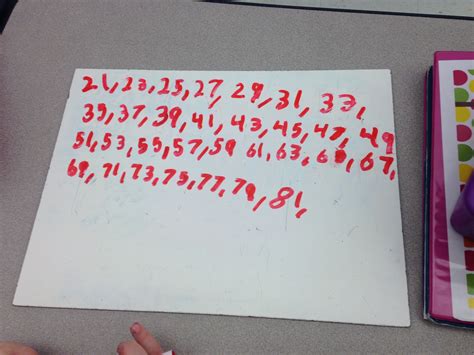 21, 23, 25, 27, 29, 31, 33,
35, 37, 39, 41, 43, 45, 47, 49
51, 53, 55, 57, 59 61, 63, 65, 67,
69, 71, 73, 75, 77, 79, 81,